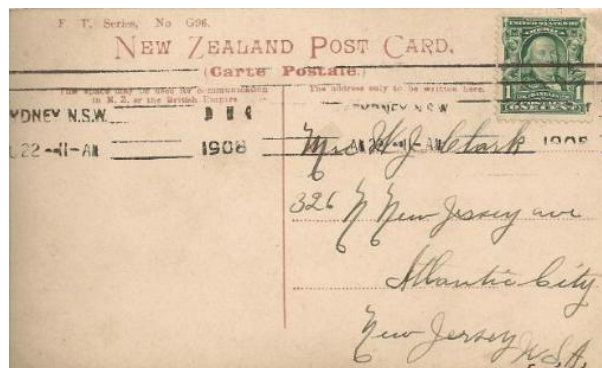 F. T. Series, No G96.
NEW ZEALAND POST CARD.
(Carte Postale.)
The space may be used for communication
in N. Z. or the British Empire
The address only to be written here.
1
ONE CENT
YDNEY N.S.W.
22 -11-AM 1908
SYDNEY N.S.W.
22 -11-AM 1908
Mrs W. J. Clark
326 N New Jersey ave
Atlantic City
New Jersey U.S.A.